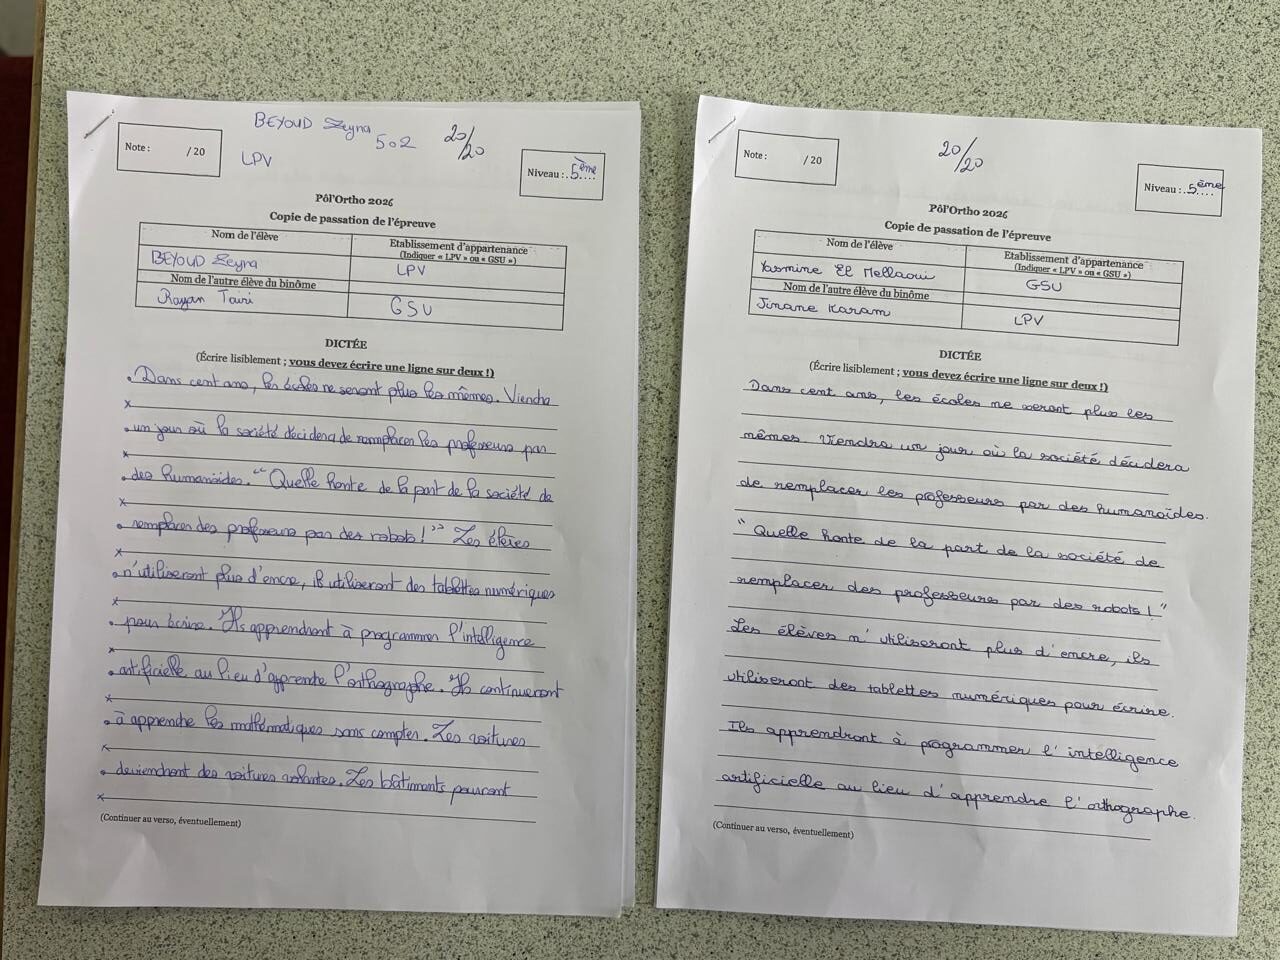 BEYOUD Zeyna 502
20/20
LPV
Note : / 20
Niveau : .5ème....
Pôl'Ortho 2026
Copie de passation de l'épreuve
Nom de l'élève
Etablissement d'appartenance
(Indiquer « LPV » ou « GSU »)
BEYOUD Zeyna
LPV
Nom de l'autre élève du binôme
Rayan Tairi
GSU
DICTÉE
(Écrire lisiblement ; vous devez écrire une ligne sur deux !)
Dans cent ans, les écoles ne seront plus les mêmes. Viendra
un jour où la société décidera de remplacer les professeurs par
des humanoïdes. "Quelle honte de la part de la société de
remplacer des professeurs par des robots !" Les élèves
n'utiliseront plus d'encre, ils utiliseront des tablettes numériques
pour écrire. Ils apprendront à programmer l'intelligence
artificielle au lieu d'apprendre l'orthographe. Ils continueront
à apprendre les mathématiques sans compter. Les voitures
deviendront des voitures volantes. Les bâtiments pourront
(Continuer au verso, éventuellement)
Note : / 20
20/20
Niveau : .5ème....
Pôl'Ortho 2026
Copie de passation de l'épreuve
Nom de l'élève
Etablissement d'appartenance
(Indiquer « LPV » ou « GSU »)
Yasmine El Mellaoui
GSU
Nom de l'autre élève du binôme
Jinane Karam
LPV
DICTÉE
(Écrire lisiblement ; vous devez écrire une ligne sur deux !)
Dans cent ans, les écoles ne seront plus les
mêmes. Viendra un jour où la société décidera
de remplacer les professeurs par des humanoïdes.
"Quelle honte de la part de la société de
remplacer des professeurs par des robots !"
Les élèves n'utiliseront plus d'encre, ils
utiliseront des tablettes numériques pour écrire.
Ils apprendront à programmer l'intelligence
artificielle au lieu d'apprendre l'orthographe.
(Continuer au verso, éventuellement)